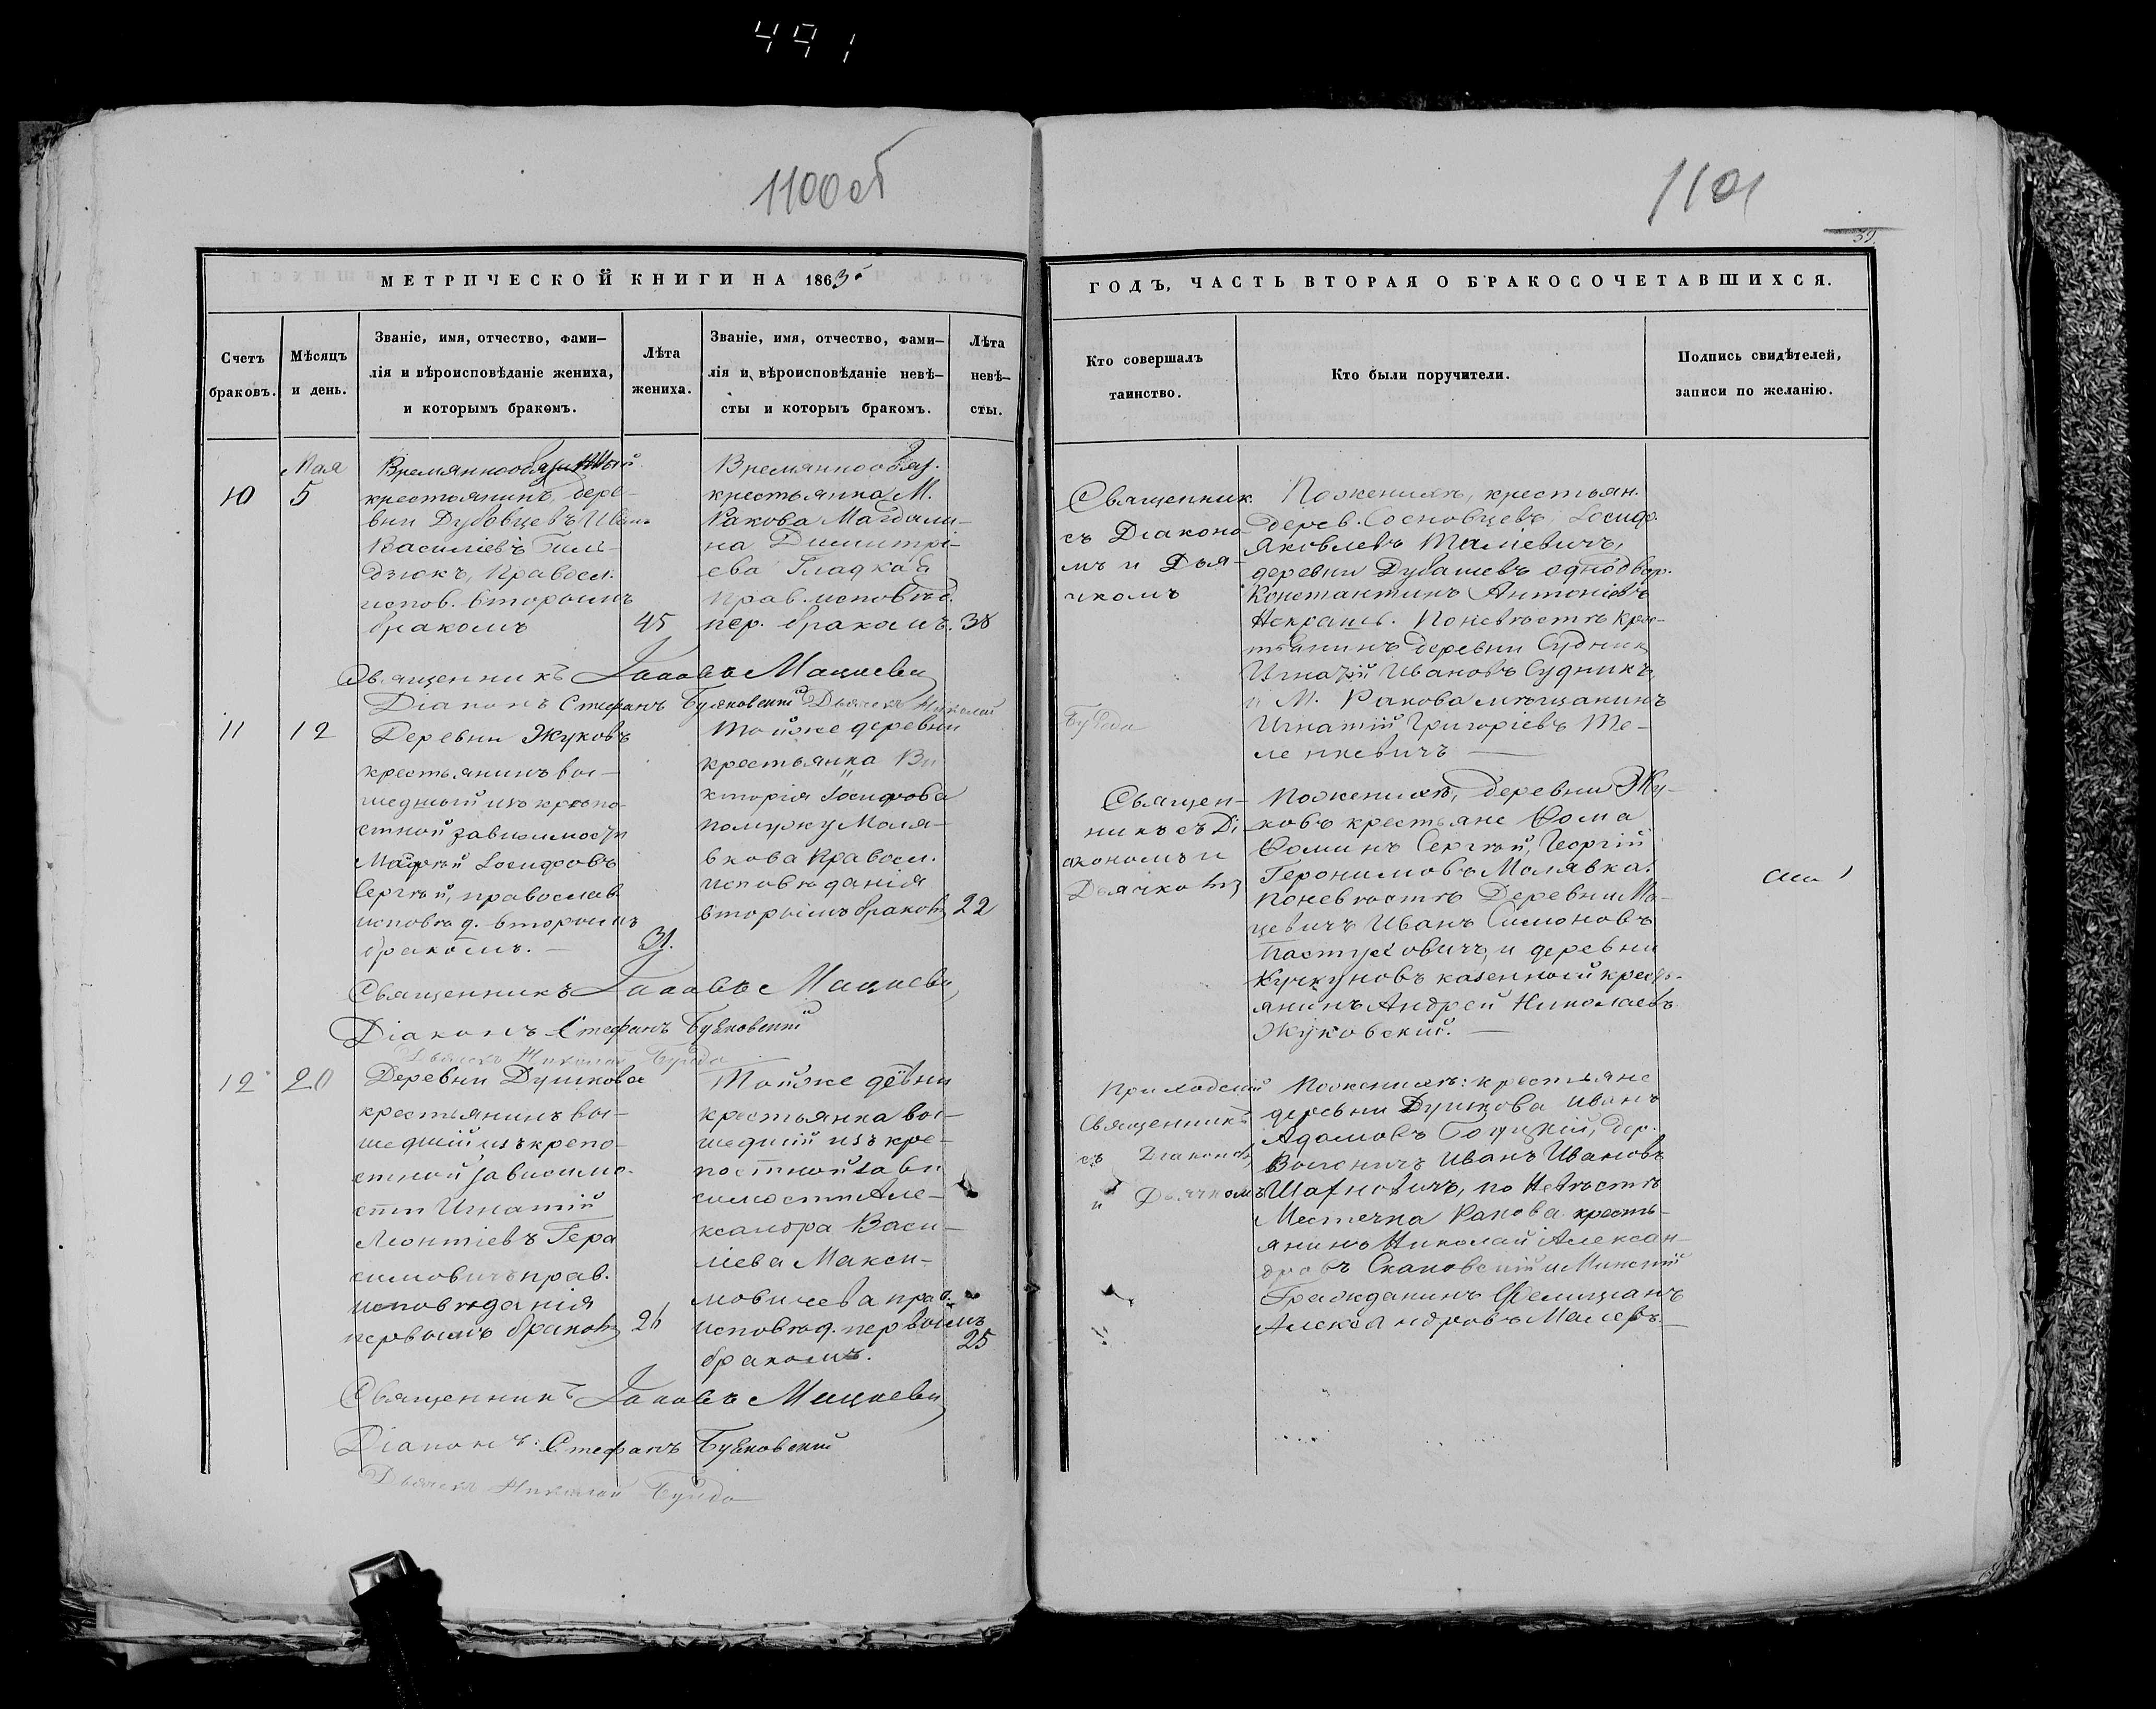 491
1100об
1101
39.
МЕТРИЧЕСКОЙ КНИГИ НА 1863
Счетъ браковъ.
Мѣсяцъ и день.
Званіе, имя, отчество, фами-
лія и вѣроисповѣданіе жениха,
и которымъ бракомъ.
Лѣта жениха.
Званіе, имя, отчество, фами-
лія и вѣроисповѣданіе невѣ-
сты и которыъ бракомъ.
Лѣта невѣ-
сты.
Мая
10 5
Времяннообязанный
крестьянинъ, дере-
вни Дубовцевъ Иванъ
Василіевъ
дзюкъ, Правосл.
испов. вторымъ
бракомъ
45
Времяннообяз.
крестьянка М.
Ракова Магдали-
на Димитрі-
ева Гладкая
прав. исповѣд.
пер. бракомъ.
38
Священникъ Іаковъ
Діаконъ Стефанъ Дьячекъ Николай
11 12
Деревни Жуковъ
крестьянинъ вы-
шедшый изъ крепо-
стной зависимости
Іосифовъ
Сергѣй, православ.
исповѣд. вторымъ
бракомъ.
31.
Тойже деревни
крестьянка Ви-
кторія Іосифова
по мужу Моля-
вкова Правосл.
исповѣданія
вторымъ бракомъ
22
Священникъ Іаковъ
Діаконъ Стефанъ
Дьячекъ Николай
12 20
Деревни Душкова
крестьянинъ вы-
шедшій изъ крепо-
стной зависимо-
сти Игнатій
Леонтіевъ Гера
симовичъ прав.
исповѣданія
первымъ бракомъ
26
Тойже девни
крестьянка вы-
шедшій изъ кре-
постной зави
симости Але-
ксандра Васи-
ліева Макси-
мовичева прав.
исповѣд. первымъ
бракомъ.
25
Священникъ Іаковъ
Діаконъ: Стефанъ
Дьячекъ Николай
ГОДЪ, ЧАСТЬ ВТОРАЯ О БРАКОСОЧЕТАВШИХСЯ.
Кто совершалъ
таинство.
Кто были поручители.
Подпись свидѣтелей,
записи по желанію.
Священник
съ Діаконо-
мъ и Дья-
чкомъ
По женихѣ, крестьян.
дерев. Сосновцевъ, Іосифъ
Яковлевъ
деревни Дубашевъ однодвор.
Константинъ Антоніевъ
По невѣстѣ крес-
тьянинъ деревни Судник
Игнатій Ивановъ Судникъ,
и М. Ракова мѣщанинъ
Игнатій Григоріевъ Те-
ленкевичъ
Священ-
никъ съ Ді-
акономъ и
Дьячкомъ
По женихѣ, деревни Жу-
ковъ крестьяне Ѳома
Ѳоминъ Сергѣй, Георгій
Геронимовъ Молявка.
По невѣстѣ Деревни Ма-
цевичъ Иванъ Симоновъ
Пастуховичъ, и деревни
Кучкуновъ казенный кресть-
янинъ Андрей Николаевъ
Жуковскій.
Приходскій
Священникъ
съ Діакономъ
и Дьячкомъ
По женихѣ: крестьяне
деревни Душкова Иванъ
Адамовъ дер.
Иванъ Ивановъ
по невѣстѣ
Местечка Ракова кресть-
янинъ Николай Алексан-
дровъ и Минскій
Гражданинъ Фелиціанъ
Александровъ